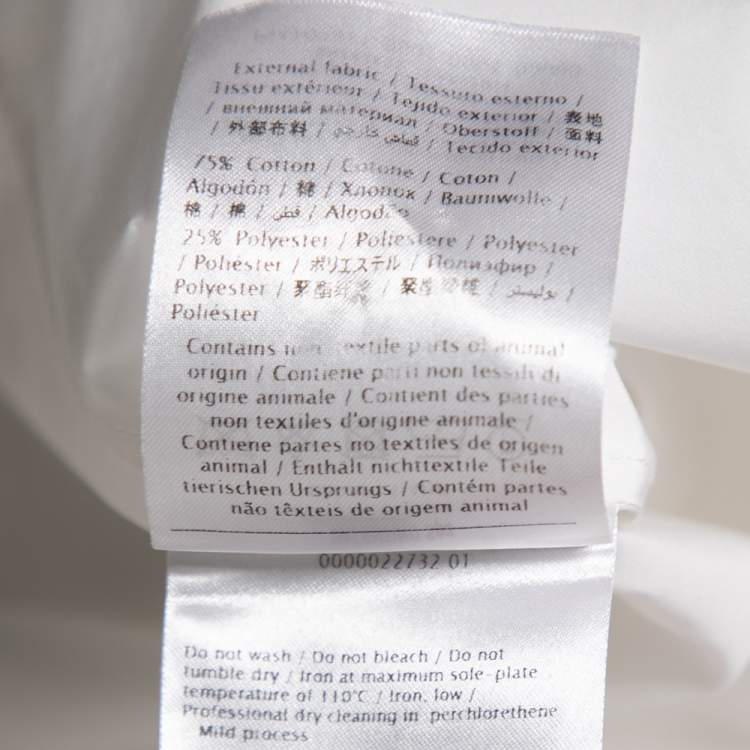 External fabric / Tessuto esterno /
Tissu extérieur / Tejido exterior / 表地
/ внешний материал / Oberstoff / 面料
/ 外部布料 / قماش خارجي / Tecido exterior
75% Cotton / Cotone / Coton /
Algodón / 棉 / Хлопок / Baumwolle /
棉 / 棉 / قطن / Algodão
25% Polyester / Poliestere / Polyester
/ Poliéster / ポリエステル / Полиэфир /
Polyester / 聚酯纤维 / 聚酯纖維 / بوليستر /
Poliéster
Contains non textile parts of animal
origin / Contiene parti non tessili di
origine animale / Contient des parties
non textiles d'origine animale /
Contiene partes no textiles de origen
animal / Enthält nichttextile Teile
tierischen Ursprungs / Contém partes
não têxteis de origem animal
0000022732 01
Do not wash / Do not bleach / Do not
tumble dry / Iron at maximum sole-plate
temperature of 110°C / Iron, low /
Professional dry cleaning in perchlorethene
Mild process